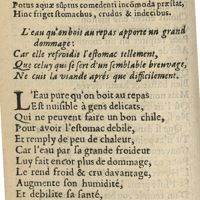 Potus aquæ sũptus comedenti incõmoda præstat,
Hinc friget stomachus, crudus & indecibus.
L'eau qu'on boit au repas apporte un grand
dommage:
Car elle refroidit l'estomac tellement,
Que celuy qui se sert d'un semblable breuvage,
Ne cuit la viande aprés que difficilement.
L'Eau pure qu'on boit au repas
Est nuisible à gens delicats,
Qui ne peuvent faire un bon chile,
Pour avoir l'estomac debile,
Et remply de peu de chaleur,
Car l'eau par sa grande froideur
Luy fait encor plus de dommage,
Le rend froid & cru davantage,
Augmente son humidité,
Et debilite sa santé,